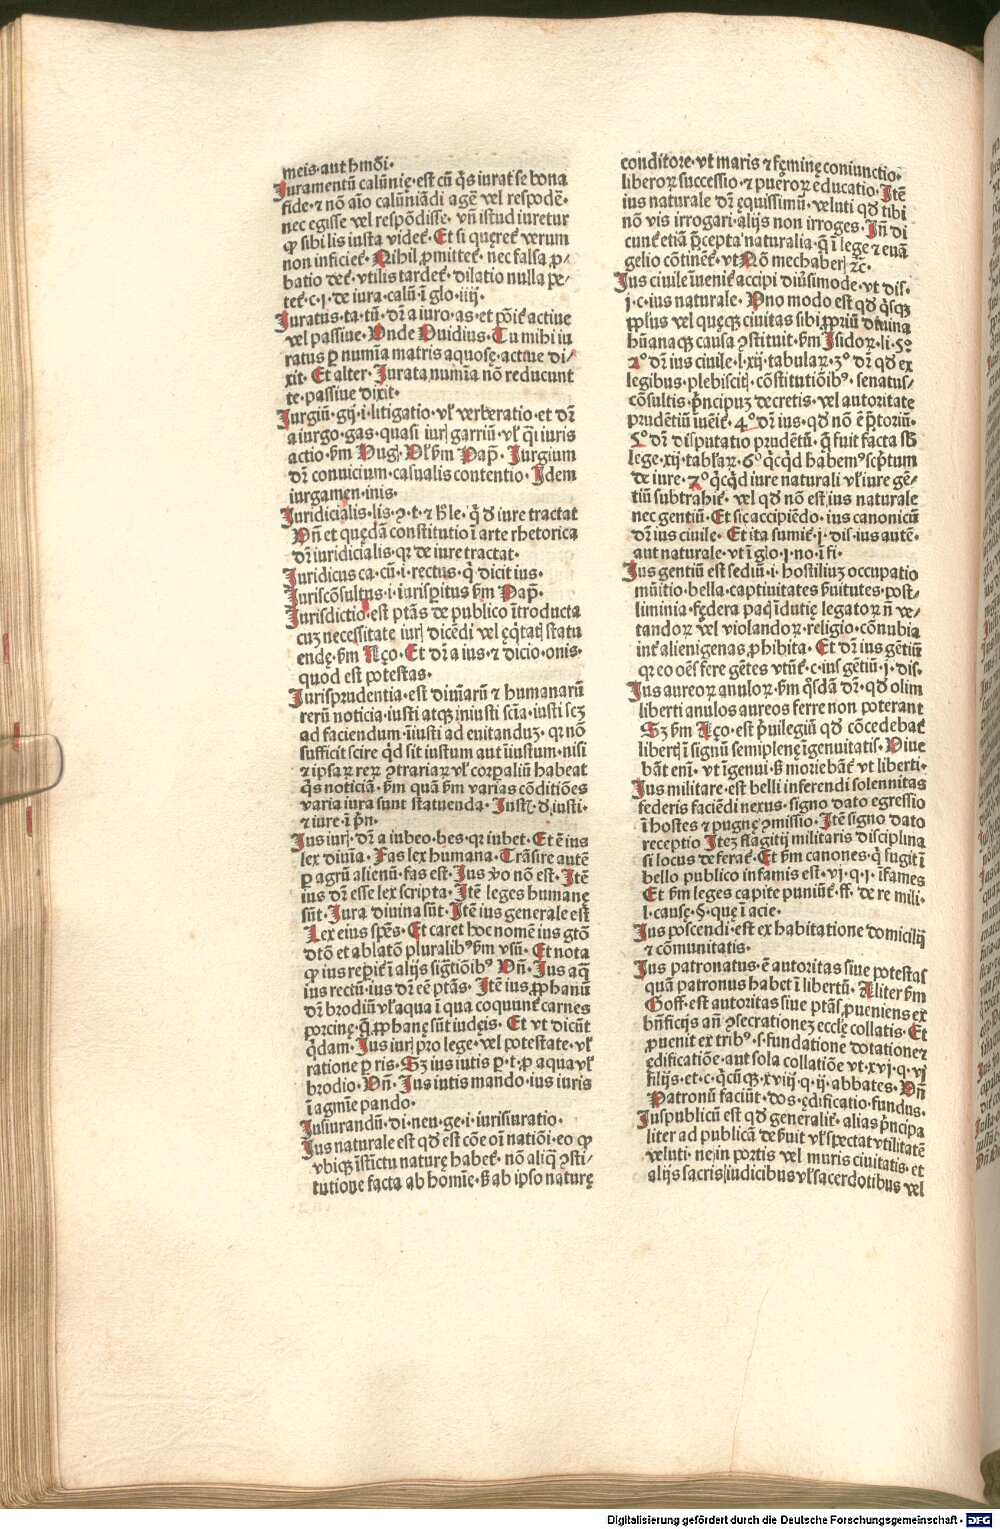 meis·aut hmōi·
Juramentū calūnię·est cū q̄s iurat se bona
fide·⁊ nō aīo calūniādi agē vel respōdē·
nec egisse vel respōdisse·vn̄ istud iuretur
ꝙ sibi lis iusta videt᷑·Et si quęret᷑ verum
non inficiet᷑·Nihil ꝓmittet᷑·nec falsa ꝓ⸗
batio det᷑·vtilis tardet᷑·dilatio nulla pe⸗
tet᷑·c·j·de iura·calū·ī glo·iiij·
Juratus·ta·tū·dr̄ a iuro·as·et pōit᷑ actiue
vel passiue·Vnde Ouidius·Tu mihi iu
ratus ꝑ numīa matris aquosę·actiue di⸗
xit·Et alter·Jurata numīa nō reducunt
te·passiue dixit·
Jurgiū·gij·i·litigatio·vl̓ verberatio·et dr̄
a iurgo·gas·quasi iurꝭ garriū·vl̓ q̄i iuris
actio·ẜm Hug·Vl̓ ẜm Pap̄·Jurgium
dr̄ conuicium·casualis contentio·Idem
iurgamen·inis·
Juridicialis·lis·ꝯ·t·⁊ h̓ le·q̄ ď iure tractat
Vn̄ et quędā constitutio ī arte rhetorica
dr̄ iuridicialis·qꝛ de iure tractat·
Juridicus·ca·cū·i·rectus·q̄ dicit ius·
Juriscōsultus·i·iurisꝑitus ẜm Pap̄·
Jurisdictio·est ptās de publico ītroducta
cuꝫ necessitate iurꝭ dicēdi vel ęq̄tatꝭ statu
endę·ẜm Aço·Et dr̄ a ius·⁊ dicio·onis·
quod est potestas·
Jurisprudentia·est diuīarū ⁊ humanarū
rerū noticia·iusti atqꝫ iniusti scīa·iusti scꝫ
ad faciendum·īiusti ad euitanduꝫ·qꝛ nō
sufficit scire qd̄ sit iustum aut īiustum·nisi
⁊ ipsaꝝ reꝝ ꝯtrariaꝝ vl̓ corꝑaliū habeat
q̄s noticiā·ẜm quā ẜm varias cōditiōes
varia iura sunt statuenda·Justꝭ·ď iusti·
⁊ iure·ī pn̄·
Jus iurꝭ·dr̄ a iubeo·bes·qꝛ iubet·Et ē ius
lex diuīa·Fas lex humana·Trāsire autē
ꝑ agrū alienū·fas est·Jus ꝟo nō est·Itē
ius dr̄ esse lex scripta·Itē leges humanę
sūt·Jura diuina sūt·Itē ius generale est
Lex eius spēs·Et caret hoc nomē ius gtō
dtō et ablatō pluralibꝰ ẜm vsū·Et nota
ꝙ ius reꝑit᷑ ī alijs sigītiōibꝰ Vn̄·Jus aq̄
ius rectū·ius dr̄ eē ptās·Itē ius ꝓphanū
dr̄ brodiū vl̓ aqua ī qua coquunt᷑ carnes
porcinę·q̄ ꝓphanę sūt iudęis·Et vt dicūt
q̄dam·Jus iurꝭ pro lege·vel potestate·vl̓
ratione ꝑ ris·Sꝫ ius iutis ꝑ·t·ꝓ aqua vl̓
brodio·Vn̄·Jus iutis mando·ius iuris
ī agmīe pando·
Jusiurandū·di·neu·ge·i·iurisiuratio·
Jus naturale est qd̓ est cōe oī natiōi·eo ꝙ
vbiqꝫ īstīctu naturę habet᷑·nō aliq̄ ꝯsti⸗
tutione facta ab homīe·ẜ ab ipso naturę
conditore·vt maris ⁊ fęminę coniunctio·
liberoꝝ successio·⁊ pueroꝝ educatio·Itē
ius naturale dr̄ ęquissimū·veluti qd̓ tibi
nō vis irrogari·alijs non irroges·Jn̄ di
cunt᷑ etiā p̄cepta naturalia·q̄ ī lege ⁊ euā
gelio cōtinēt᷑·vt Nō mechaberꝭ ⁊c̄·
Jus ciuile īuenit᷑ accipi diūsimode·vt dis·
j·c·ius naturale·Pno modo est qd̓ q̄sqꝫ
ꝓplus vel quęqꝫ ciuitas sibi ꝓpriū diuina
hūanaqꝫ causa ꝯstituit·ẜm Isidoꝝ·li·5º
2º dr̄ ius ciuile·l·xij·tabulaꝝ·3º dr̄ qd̓ ex
legibus·plebiscitꝭ·cōstitutiōibꝰ·senatus⸗
cōsultis·pn̄cipuꝫ decretis·vel autoritate
prudētiū īuēit᷑·4º dr̄ ius·qd̓ nō ē p̄toriū·
5º dr̄ disputatio prudētū·q̄ fuit facta sƀ
lege·xij·tabl̓aꝝ·6º q̄cq̄d habemꝰ scp̄tum
de iure·7º q̄cq̄d iure naturali vl̓ iure gē⸗
tiū subtrahit᷑·vel qd̓ nō est ius naturale
nec gentiū·Et sic accipiēdo·ius canonicū
dr̄ ius ciuile·Et ita sumit᷑·j·dis·ius autē·
aut naturale·vt ī glo·j·no·ī fi·
Jus gentiū est sediū·i·hostiliuꝫ occupatio
mūitio·bella·captiuitates ẜuitutes·post⸗
liminia·fędera paq̄ īdutię legatoꝝ n̄ ve⸗
tandoꝝ vel violandoꝝ·religio·cōnubia
int᷑ alienigenas ꝓhibita·Et dr̄ ius gētiū
qꝛ eo oēs fere gētes vtūt᷑·c·ius gētiū·j·dis·
Jus aureoꝝ anuloꝝ·ẜm q̄sdā dr̄·qd̓ olim
liberti anulos aureos ferre non poterant
Sꝫ ẜm Aço·est p̄uilegiū qd̓ cōcedebat᷑
libertꝭ ī signū semiplenę īgenuitatis·Viue
bāt enī·vt īgenui·ẜ moriebāt᷑ vt liberti·
Jus militare·est belli inferendi solennitas
federis faciēdi nexus·signo dato egressio
ī hostes ⁊ pugnę ꝯmissio·Itē signo dato
receptio Iteꝫ flagitij militaris disciplina
si locus deferat᷑·Et ẜm canones·q̄ fugit ī
bello publico infamis est·vj·q·j·īfames
Et ẜm leges capite puniūt᷑·ff·de re mili·
l·causę·§·que ī acie·
Jus poscendi·est ex habitatione domicilij
⁊ cōmunitatis·
Jus patronatus·ē autoritas siue potestas
quā patronus habet ī libertū·Aliter ẜm
Goff·est autoritas siue ptās ꝓueniens ex
bn̄ficijs an̄ ꝯsecrationeꝫ ecclę collatis·Et
ꝓuenit ex tribꝰ·s·fundatione dotatione⁊
ędificatiōe·aut sola collatiōe vt·xvj·q·vij
filijs·et·c·q̄cūqꝫ·xviij·q·ij·abbates·Vn̄
Patronū faciūt·dos·ędificatio·fundus·
Juspublicū est qd̓ generalit᷑·alias pn̄cipa
liter ad publicā deẜuit vl̓ spectat vtilitatē
veluti·ne in portis vel muris ciuitatis·et
alijs sacris·iudicibus vl̓ sacerdotibus vel
Digitalisierung gefördert durch die Deutsche Forschungsgemeinschaft - DFG